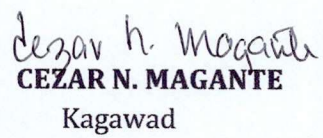 Cezar N. Magante
CEZAR N. MAGANTE
Kagawad